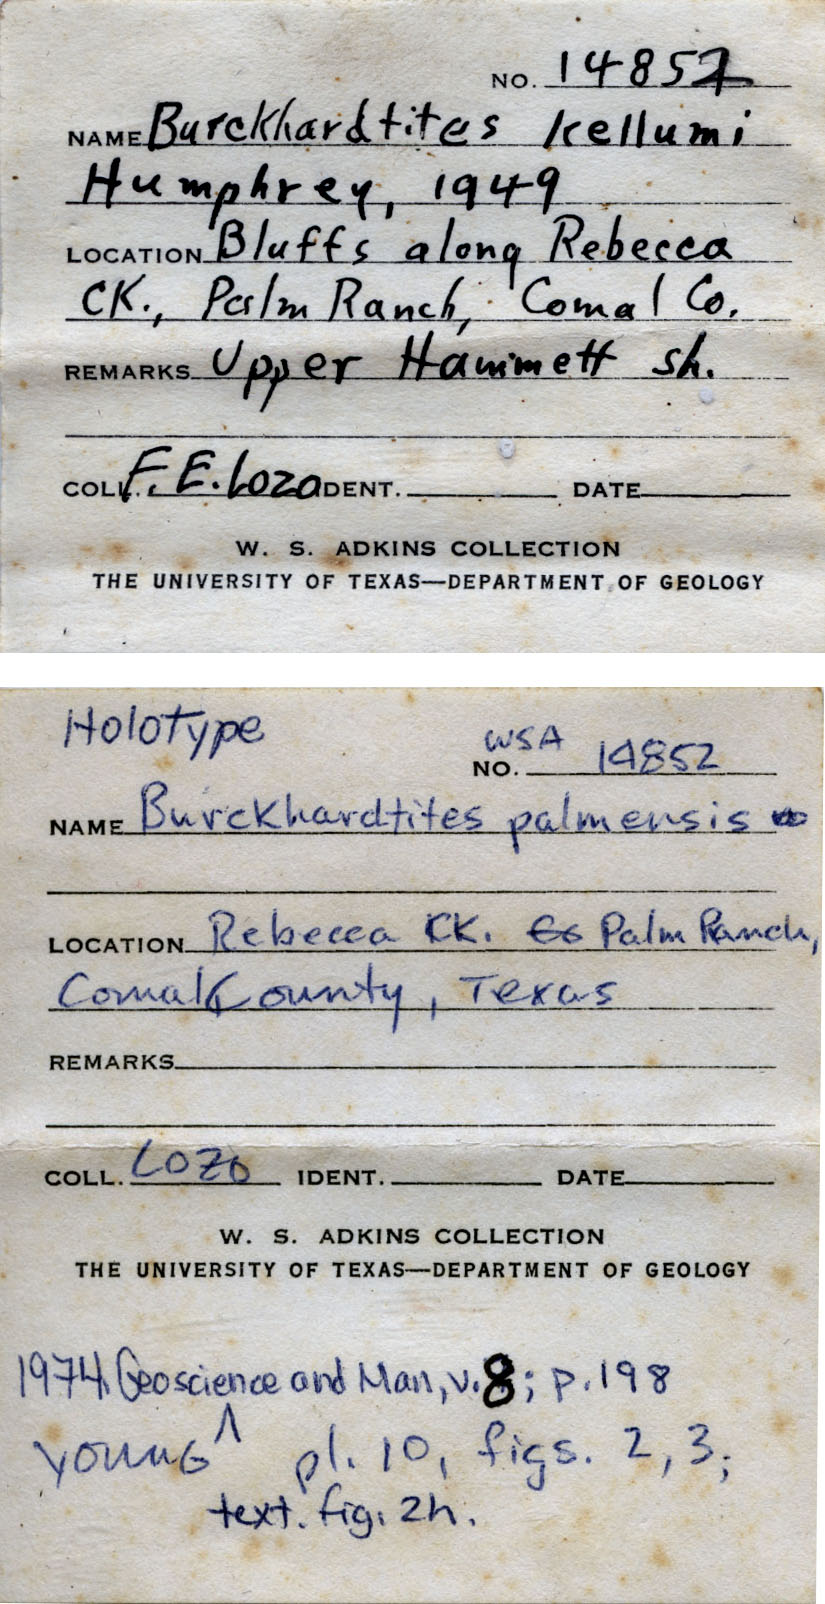 NO. 14852
NAME Burckhardtites kellumi
Humphrey, 1949
LOCATION Bluffs along Rebecca
CK., Palm Ranch, Comal Co.
REMARKS Upper Hammett sh.
COLL. F. E. Lozo IDENT. DATE
W. S. ADKINS COLLECTION
THE UNIVERSITY OF TEXAS—DEPARTMENT OF GEOLOGY
Holotype
WSA
NO. 14852
NAME Burckhardtites palmensis
LOCATION Rebecca CK. Co Palm Ranch,
Comal County, Texas
REMARKS
COLL. LOZO IDENT. DATE
W. S. ADKINS COLLECTION
THE UNIVERSITY OF TEXAS—DEPARTMENT OF GEOLOGY
1974. Geoscience and Man, v. 8; p. 198
YOUNG ^ pl. 10, figs. 2, 3;
text. fig. 2h.